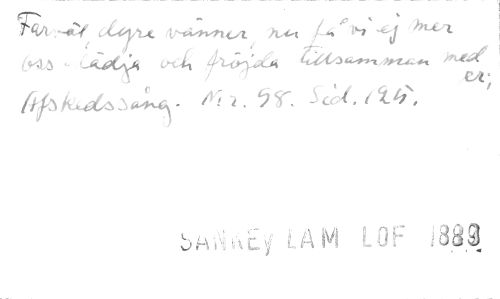 Farväl, dyre vänner, nu få vi ej mer
oss glädja och fröjda tillsamman med er;
(Afskedssång. N:r. 98. Sid. 125.
SANKEY LAM LOF 1883